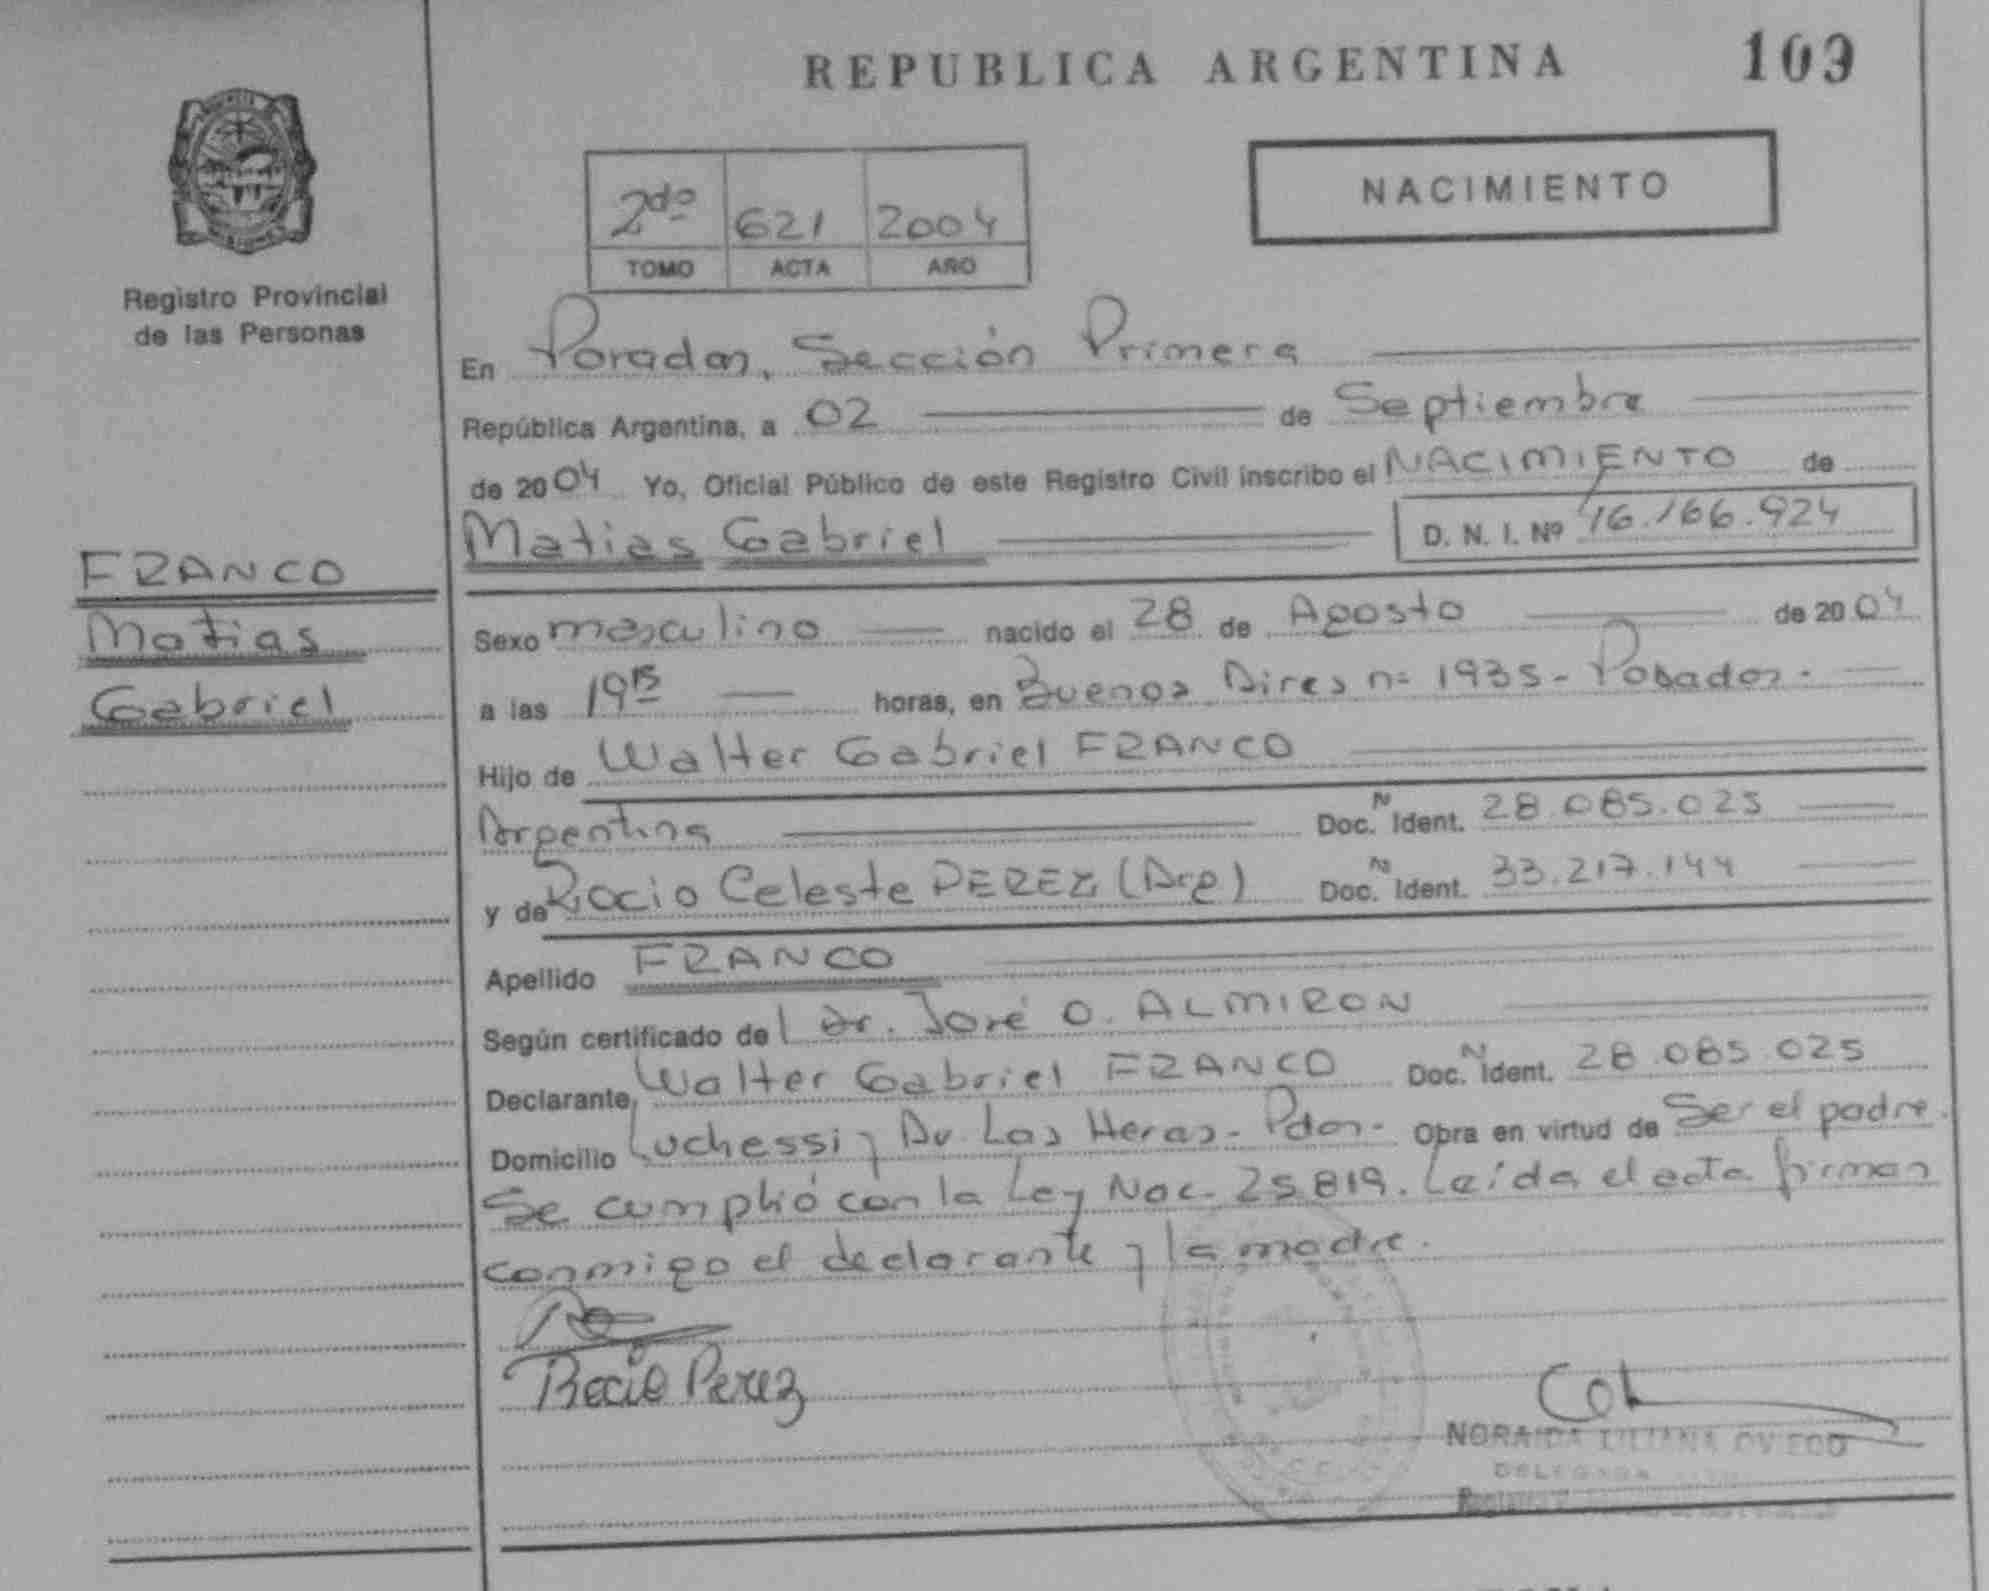 REPUBLICA ARGENTINA 103
NACIMIENTO
2do 621 2004
TOMO ACTA AÑO
Registro Provincial
de las Personas
En Posadas, Sección Primera
República Argentina, a 02 de Septiembre
de 2004 Yo, Oficial Público de este Registro Civil inscribo el NACIMIENTO de
Matias Gabriel D. N. I. Nº 46.166.924
FRANCO
Matias
Gabriel
Sexo masculino nacido el 28 de Agosto de 2004
a las 19 15 horas, en Buenos Aires nº 1935 - Posadas.
Hijo de Walter Gabriel FRANCO
Argentina Doc. N Ident. 28.085.025
y de Rocio Celeste PEREZ (Arg) Doc. N Ident. 33.217.144
Apellido FRANCO
Según certificado del Dr. José O. ALMIRON
Declarante, Walter Gabriel FRANCO Doc. N Ident. 28.085.025
Domicilio Luchessi y Av. Las Heras - Pdas. Obra en virtud de Ser el padre.
Se cumplió con la Ley Nac. 25.819. Leída el acta firman
conmigo el declarante y la madre.
Rocio Perez
NORAIDA LILIANA OVIEDO
DELEGADA